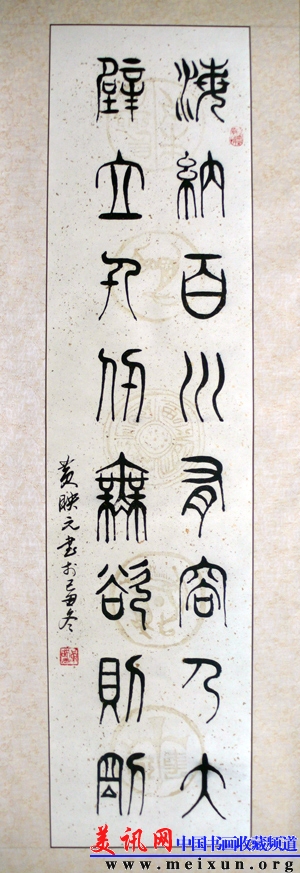 海納百川有容乃大
壁立千仞無欲則剛
黄映元书于己丑冬
美讯网
中国书画收藏频道
www.meixun.org